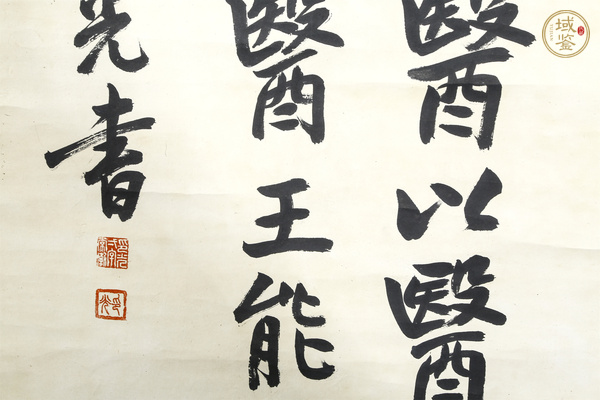 醫以醫
醫王能
光書
域鉴